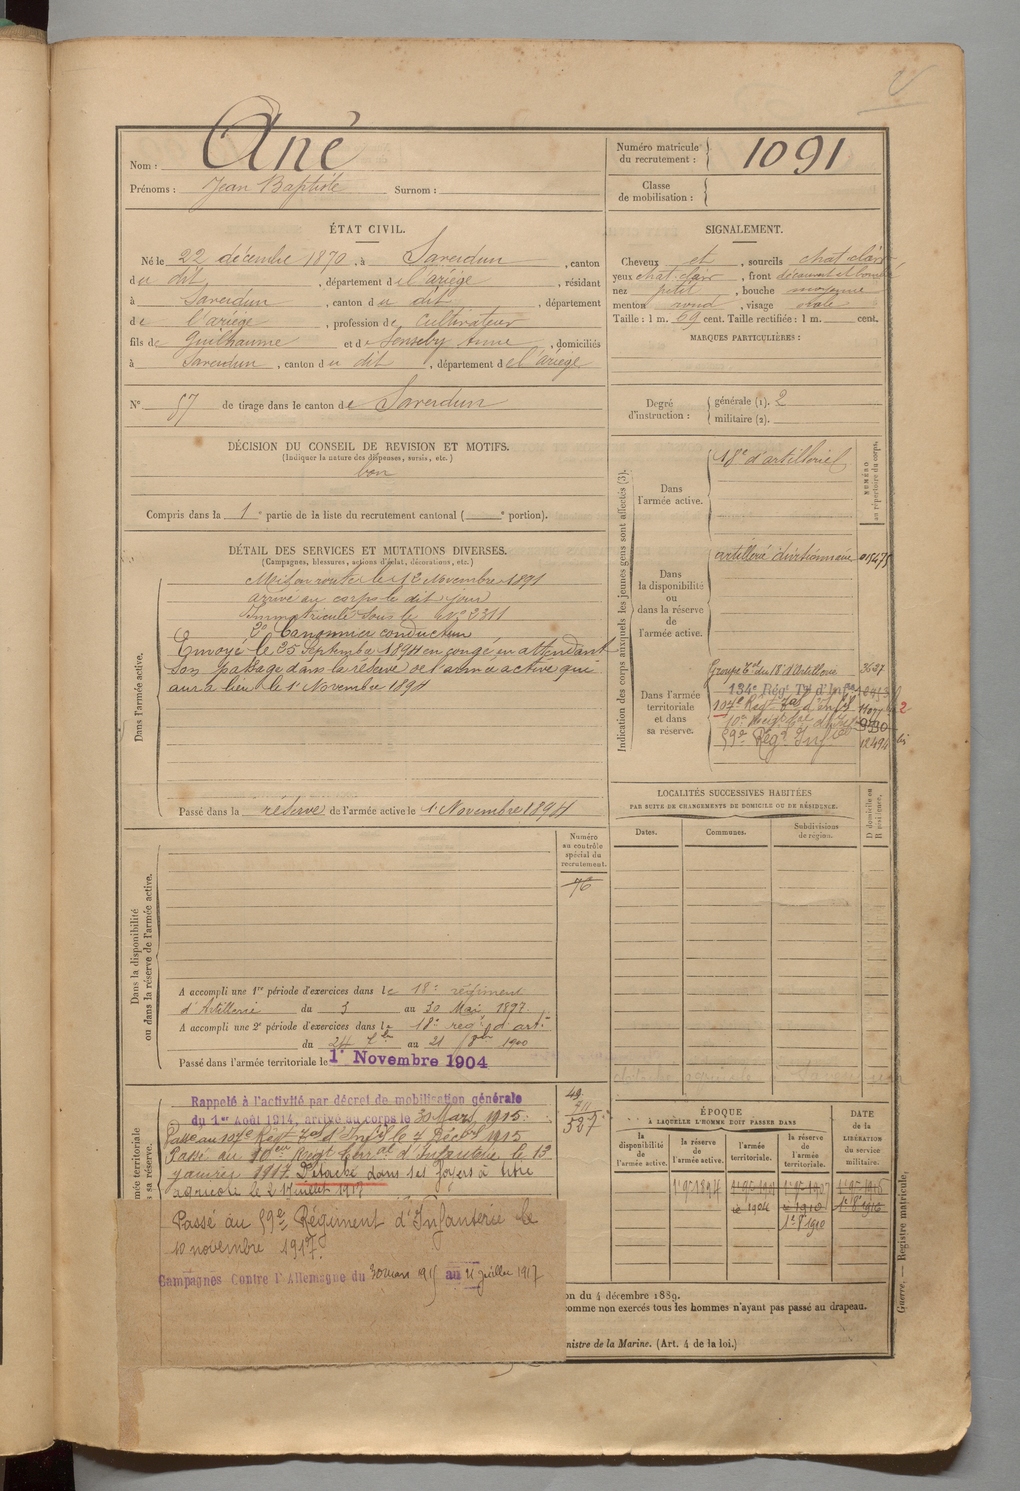 Nom : Ané
Prénoms : Jean Baptiste Surnom :
Numéro matricule du recrutement : 1091
Classe de mobilisation :
ÉTAT CIVIL.
Né le 22 décembre 1870, à Saverdun, canton
du dit, département de l'ariége, résidant
à Saverdun, canton du dit, département
de l'ariége, profession de cultivateur
fils de Guilhaume et de Anne, domiciliés
à Saverdun, canton du dit, département de l'ariége
N° 57 de tirage dans le canton de Saverdun
DÉCISION DU CONSEIL DE REVISION ET MOTIFS.
(Indiquer la nature des dispenses, sursis, etc.)
bon
Compris dans la 1e partie de la liste du recrutement cantonal ( e portion).
DÉTAIL DES SERVICES ET MUTATIONS DIVERSES.
(Campagnes, blessures, actions d'éclat, décorations, etc.)
Dans l'armée active.
Mis en route le 12 Novembre 1891
arrivé au corps le dit jour
Immatriculé sous le N° 2311
2e Canonnier conducteur
Envoyé le 25 Septembre 1894 en congé en attendant
son passage dans la réserve de l'armée active qui
aura lieu le 1er Novembre 1894
Passé dans la réserve de l'armée active le 1er Novembre 1894
Dans la disponibilité
ou dans la réserve de l'armée active.
Numéro
au contrôle
spécial du
recrutement.
76
A accompli une 1re période d'exercices dans le 18e régiment
d'Artillerie du 3 au 30 Mai 1897.
A accompli une 2e période d'exercices dans le 18e reg. d'art.
du 24 7bre au 21 8bre 1900
Passé dans l'armée territoriale le 1er Novembre 1904
Rappelé à l'activité par décret de mobilisation générale
du 1er Août 1914, arrivé au corps le 30 Mars 1915.
Passé au 107e Régt Tal d'Infie le 7 Décbre 1915
Passé au 10eme Régt terral d'Infanterie le 13
janvier 1917. Détaché dans ses foyers à titre
agricole le 21 juillet 1917
Passé au 59e Régiment d'Infanterie le
10 novembre 1917.
Campagnes Contre l'Allemagne du 30 mars 1915 au 21 juillet 1917
49
911
537
SIGNALEMENT.
Cheveux et, sourcils chat clair
yeux chat clair, front découvert et bombé
nez petit, bouche moyenne
menton rond, visage ovale
Taille : 1 m. 69 cent. Taille rectifiée : 1 m. cent.
MARQUES PARTICULIÈRES :
Degré d'instruction : générale (1). 2
militaire (2).
Indication des corps auxquels les jeunes gens sont affectés (3).
NUMÉRO
au répertoire du corps.
Dans
l'armée active.
18e d'artillerie
Dans
la disponibilité
ou
dans la réserve
de
l'armée active.
artillerie divisionnaire
Dans l'armée
territoriale
et dans
sa réserve.
Groupe Tal du 18e d'Artillerie 3627
134e Rég. Tal d'Infie
107e Régt Tal d'Infie
59e Régt Infie
LOCALITÉS SUCCESSIVES HABITÉES
PAR SUITE DE CHANGEMENTS DE DOMICILE OU DE RÉSIDENCE.
Dates. Communes. Subdivisions de région.
D domicile ou
R résidence.
ÉPOQUE
À LAQUELLE L'HOMME DOIT PASSER DANS
la disponibilité de l'armée active.
la réserve de l'armée active.
l'armée territoriale.
la réserve de l'armée territoriale.
DATE
de la
LIBÉRATION
du service
militaire.
1er 9bre 1894
1904
1910
1er 8bre 1910
on du 4 décembre 1889.
comme non exercés tous les hommes n'ayant pas passé au drapeau.
nistre de la Marine. (Art. 4 de la loi.)
Guerre. — Registre matricule.